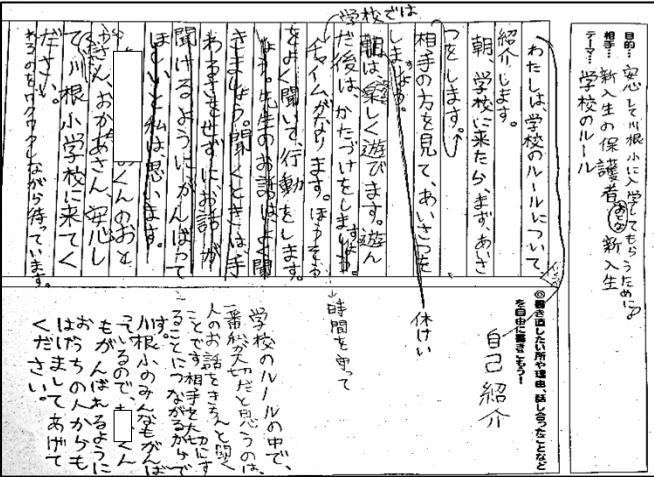 目的…安心して川根小に入学してもらうために。
相手…新入生の保護者 おとな 新入生
テーマ…学校のルール
わたしは、学校のルールについて
紹介します。
朝、学校に来たら、まず、あいさ
つをします。
相手の方を見て、あいさつを
しましょう。
学校では
朝は、楽しく遊びます。遊ん
だ後は、かたづけをします。
チャイムがなります。ほうそう
をよく聞いて、行動をします。
先生のお話は、よく聞
きましょう。聞くときは、手
わるさをせずに、お話が
聞けるように、がんばって
ほしいと私は思います。
くんのおと
うさん、おかあさん、安心し
て、川根小学校に来てく
ださい。
れるのをワクワクしながら待っています。
◎書き直したい所や理由、話し合ったことなど
を自由に書きこもう！
自己紹介
休けい
→時間を守って
学校のルールの中で、
一番大切だと思うのは、
人のお話をきちんと聞く
ことです。相手を大切にす
ることにつながるからで
す。
川根小のみんなもがんば
っているので、くん
もがんばれるように
おうちの人からも
はげましてあげて
ください。